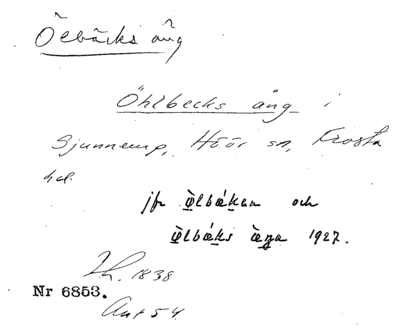 Ölbäcks äng
Öhlbecks äng i
Sjunnerup, Höör sn, Frosta
hd.
jfr ö̀lbǽkan och
ö̀lbǽks æ̀ŋa 1927.
1838
Nr 6853.
Avs 54